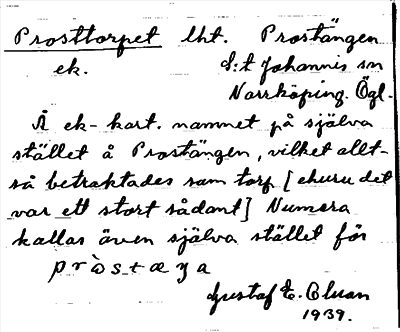 Prosttorpet lht. Prostängen
ek. S:t Johannis sn
Norrköping. Ögl.
Å ek-kart. namnet på själva
stället å Prostängen, vilket allt-
så betraktades som torp [ehuru det
var ett stort sådant] Numera
kallas även själva stället för
pròstæŋa
Gustaf E. Cluan
1939.